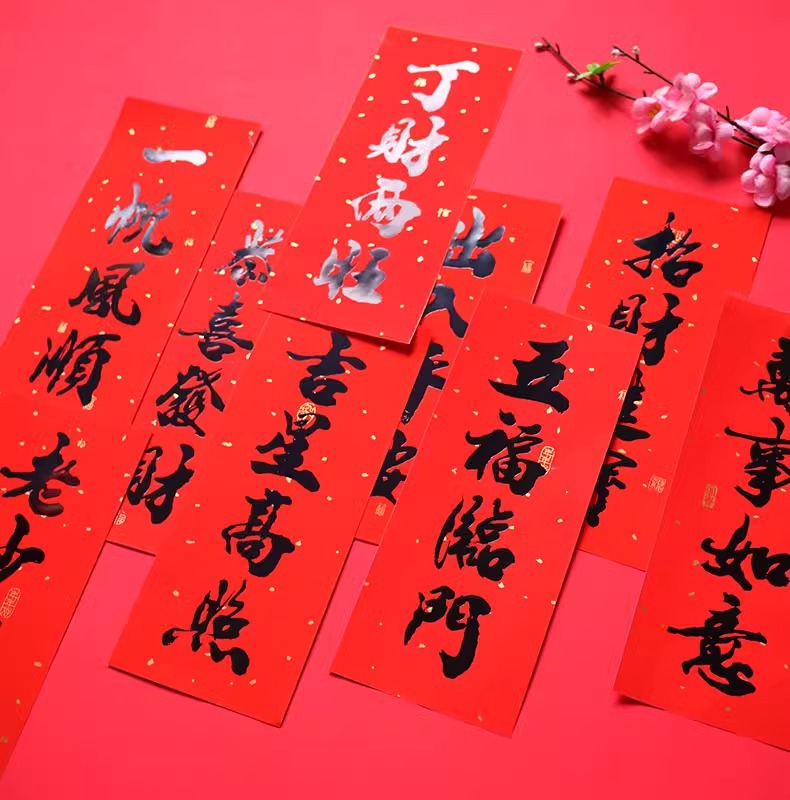 一帆風順
恭喜發財
丁財兩旺
出入平安
招財進寶
老少
吉星高照
五福臨門
萬事如意